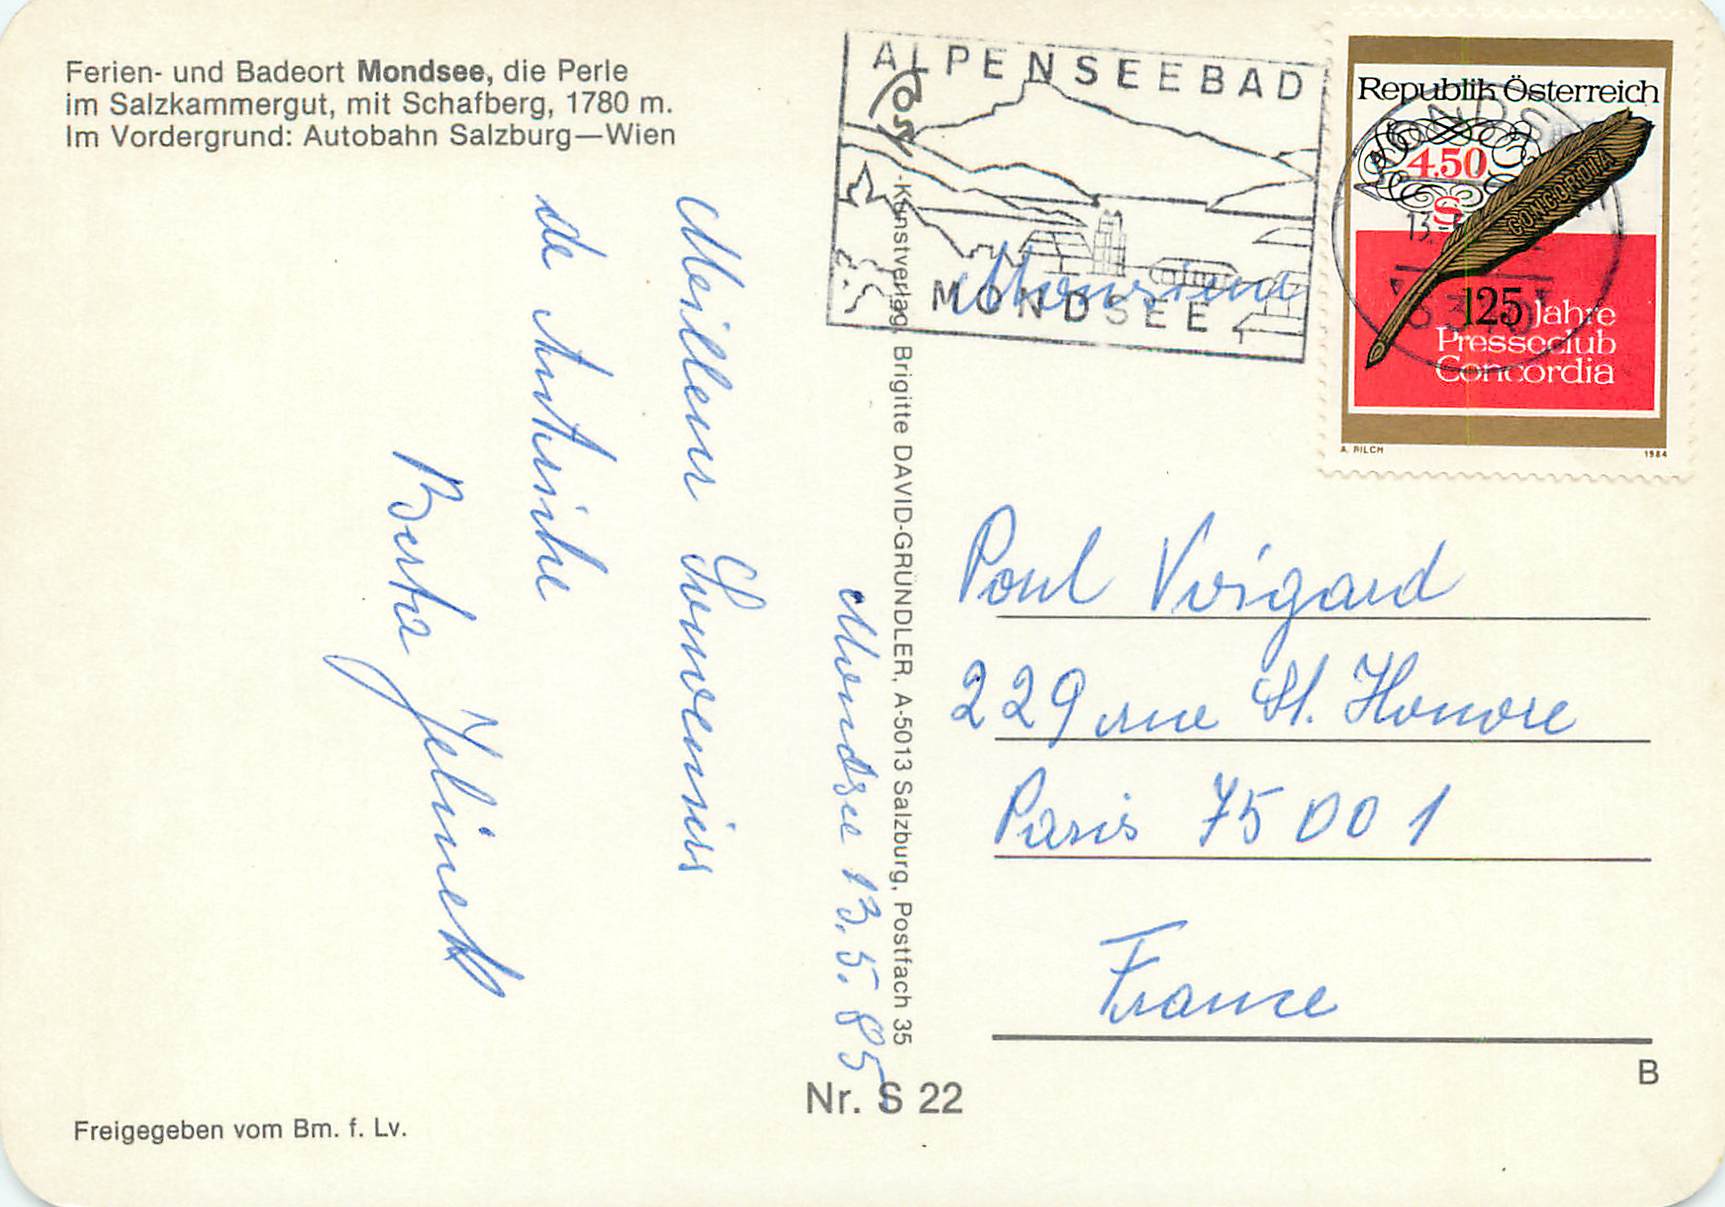 Ferien- und Badeort Mondsee, die Perle
im Salzkammergut, mit Schafberg, 1780 m.
Im Vordergrund: Autobahn Salzburg—Wien
Meilleur Souvenirs
de Autriche
Berta Jelinek
Mondsee 13.5.85
Kunstverlag Brigitte DAVID-GRÜNDLER, A-5013 Salzburg, Postfach 35
Nr. S 22
Freigegeben vom Bm. f. Lv.
ALPENSEEBAD
Post
MONDSEE
Monsieur
Republik Österreich
4.50
S
CONCORDIA
125 Jahre
Presseclub
Concordia
A. PILCH
1984
5310
Poul Voigard
229 rue St. Honore
Paris 75001
France
B